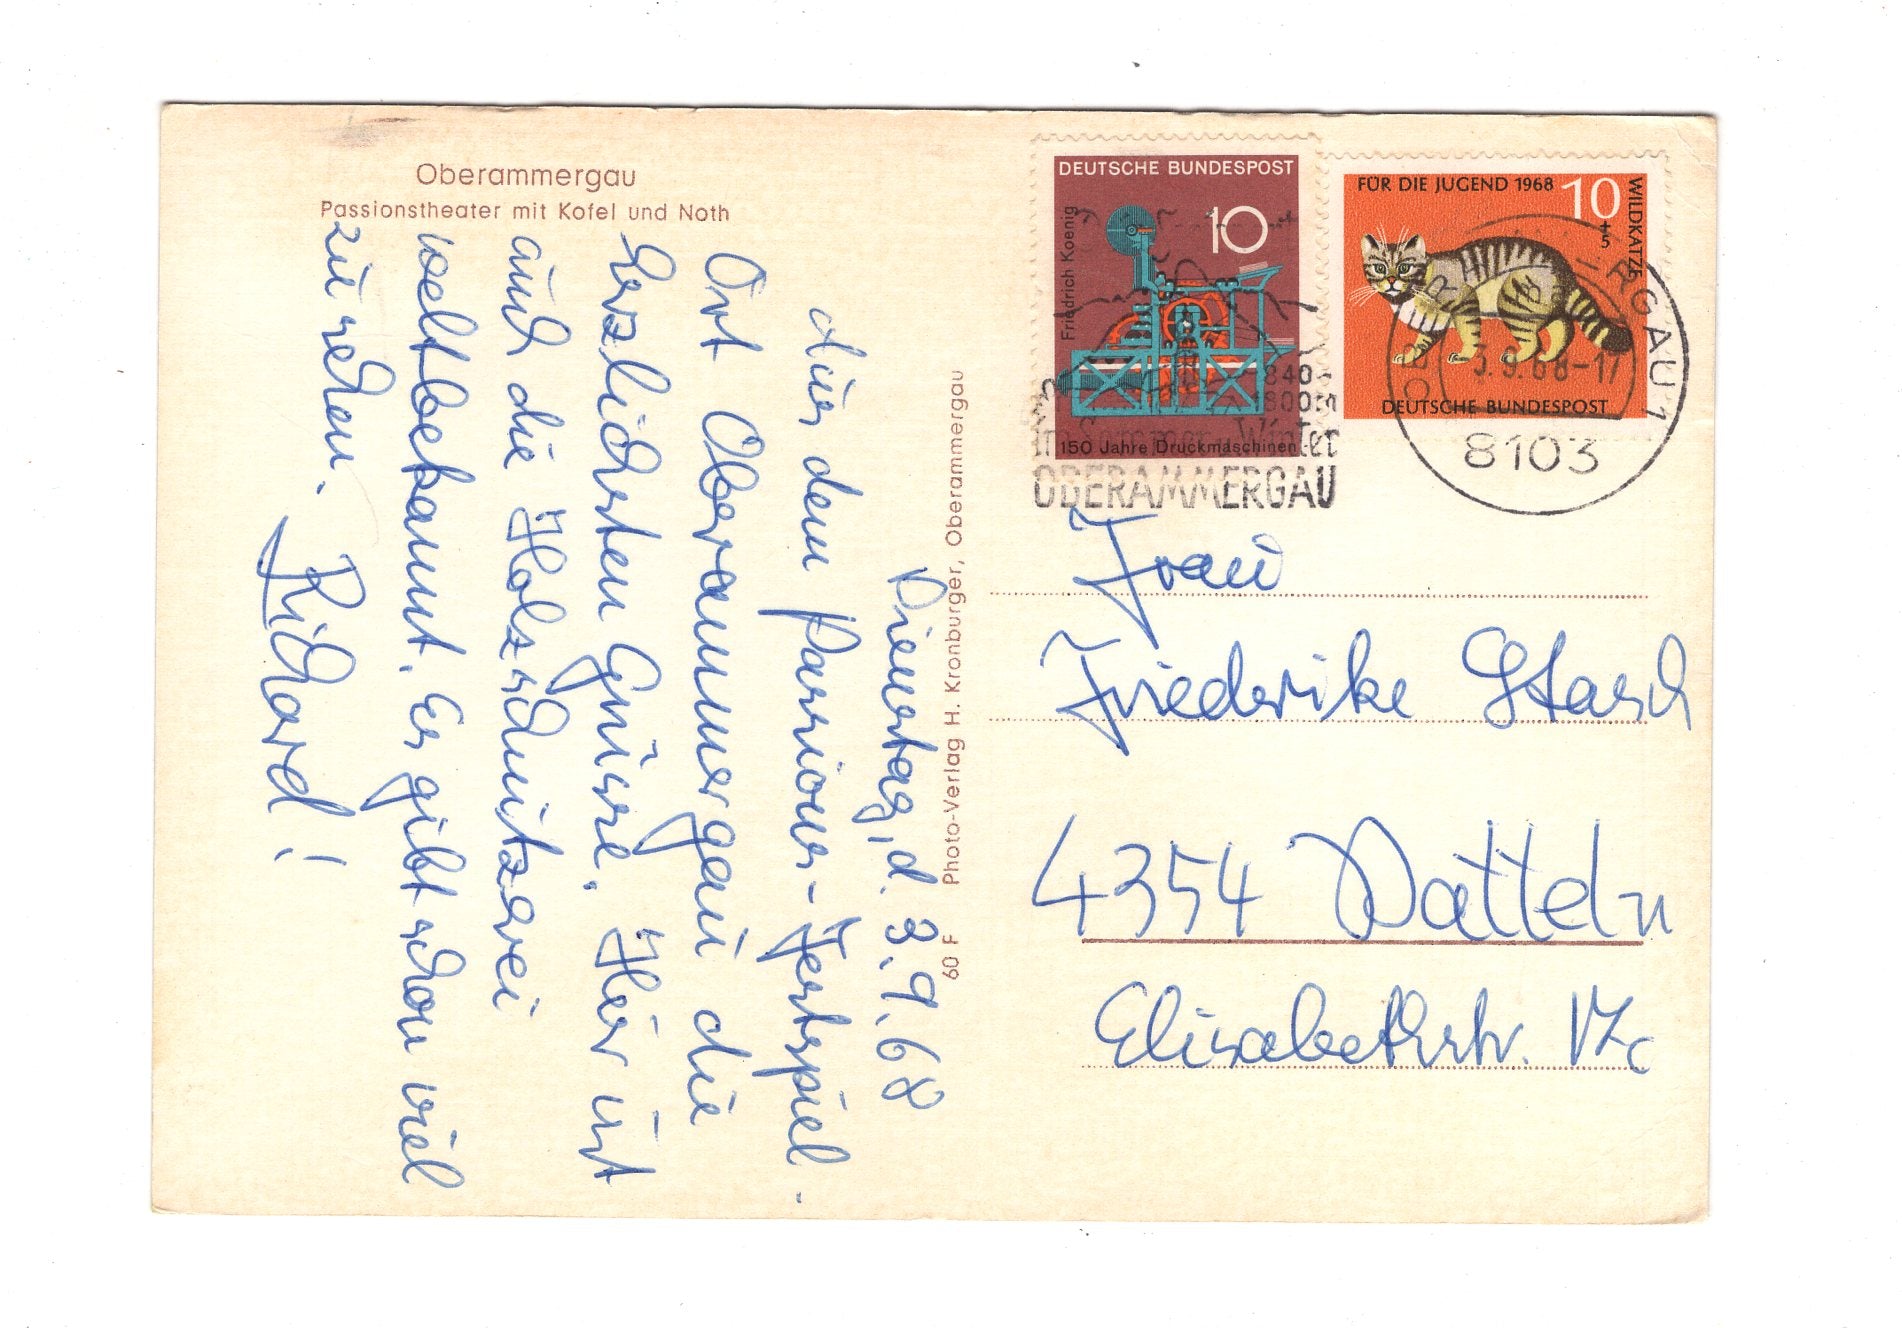 Oberammergau
Passionstheater mit Kofel und Noth
Dienstag, d. 3.9.68
Aus dem Passions-Festspiel-
Ort Oberammergau die
herzlichsten Grüsse. Hier ist
auch die Holzschnitzerei
weltbekannt. Es gibt schon viel
zu sehen.
Richard!
60 F Photo-Verlag H. Kronburger, Oberammergau
DEUTSCHE BUNDESPOST
10
Friedrich Koenig
150 Jahre Druckmaschinen
FÜR DIE JUGEND 1968
10
+
5
WILDKATZE
DEUTSCHE BUNDESPOST
840-
im Sommer Winter
OBERAMMERGAU
OBERAMMERGAU 1
3.9.68-17
8103
Frau
Friederike Stasch
4354 Datteln
Elisabethstr. 17c